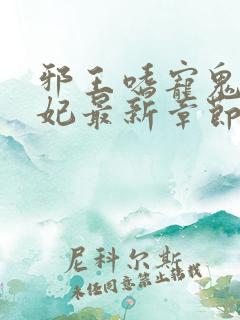 邪王嗜宠鬼
妃最新章节
尼科尔斯
未经同意禁止转载